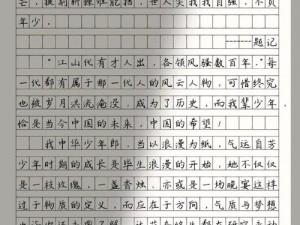 芒，披荆斩棘谁能挡，世人笑我我自强，不负
年少。
——题记
“江山代有才人出，各领风骚数百年。”每
一代都有属于那一代人的风云人物，可惜终究
也被岁月洪流淹没，成为了历史，而我辈少年
恰是当今中国的未来，中国的希望！
我中华少年郎，当以浪漫为纸，气运百芳
少年时期的成长是毕生浪漫的开始，她不仅仅
是一枝玫瑰，一盏香烛，亦或是一场晚宴这样
过于物质的定义，而应在于方向，气质与步